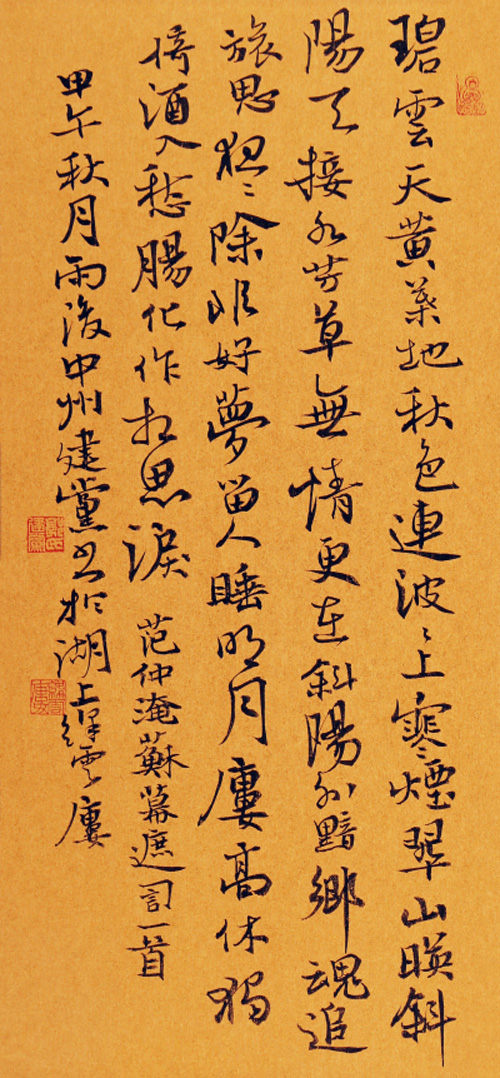 碧雲天黃葉地秋色連波〻上寒煙翠山暎斜
陽天接水芳草無情更在斜陽外黯鄉魂追
旅思夜〻除非好夢留人睡明月廔高休獨
倚酒入愁腸化作相思淚 范仲淹蘇幕遮詞一首
甲午秋月雨後中州建黨书於湖上雲廔